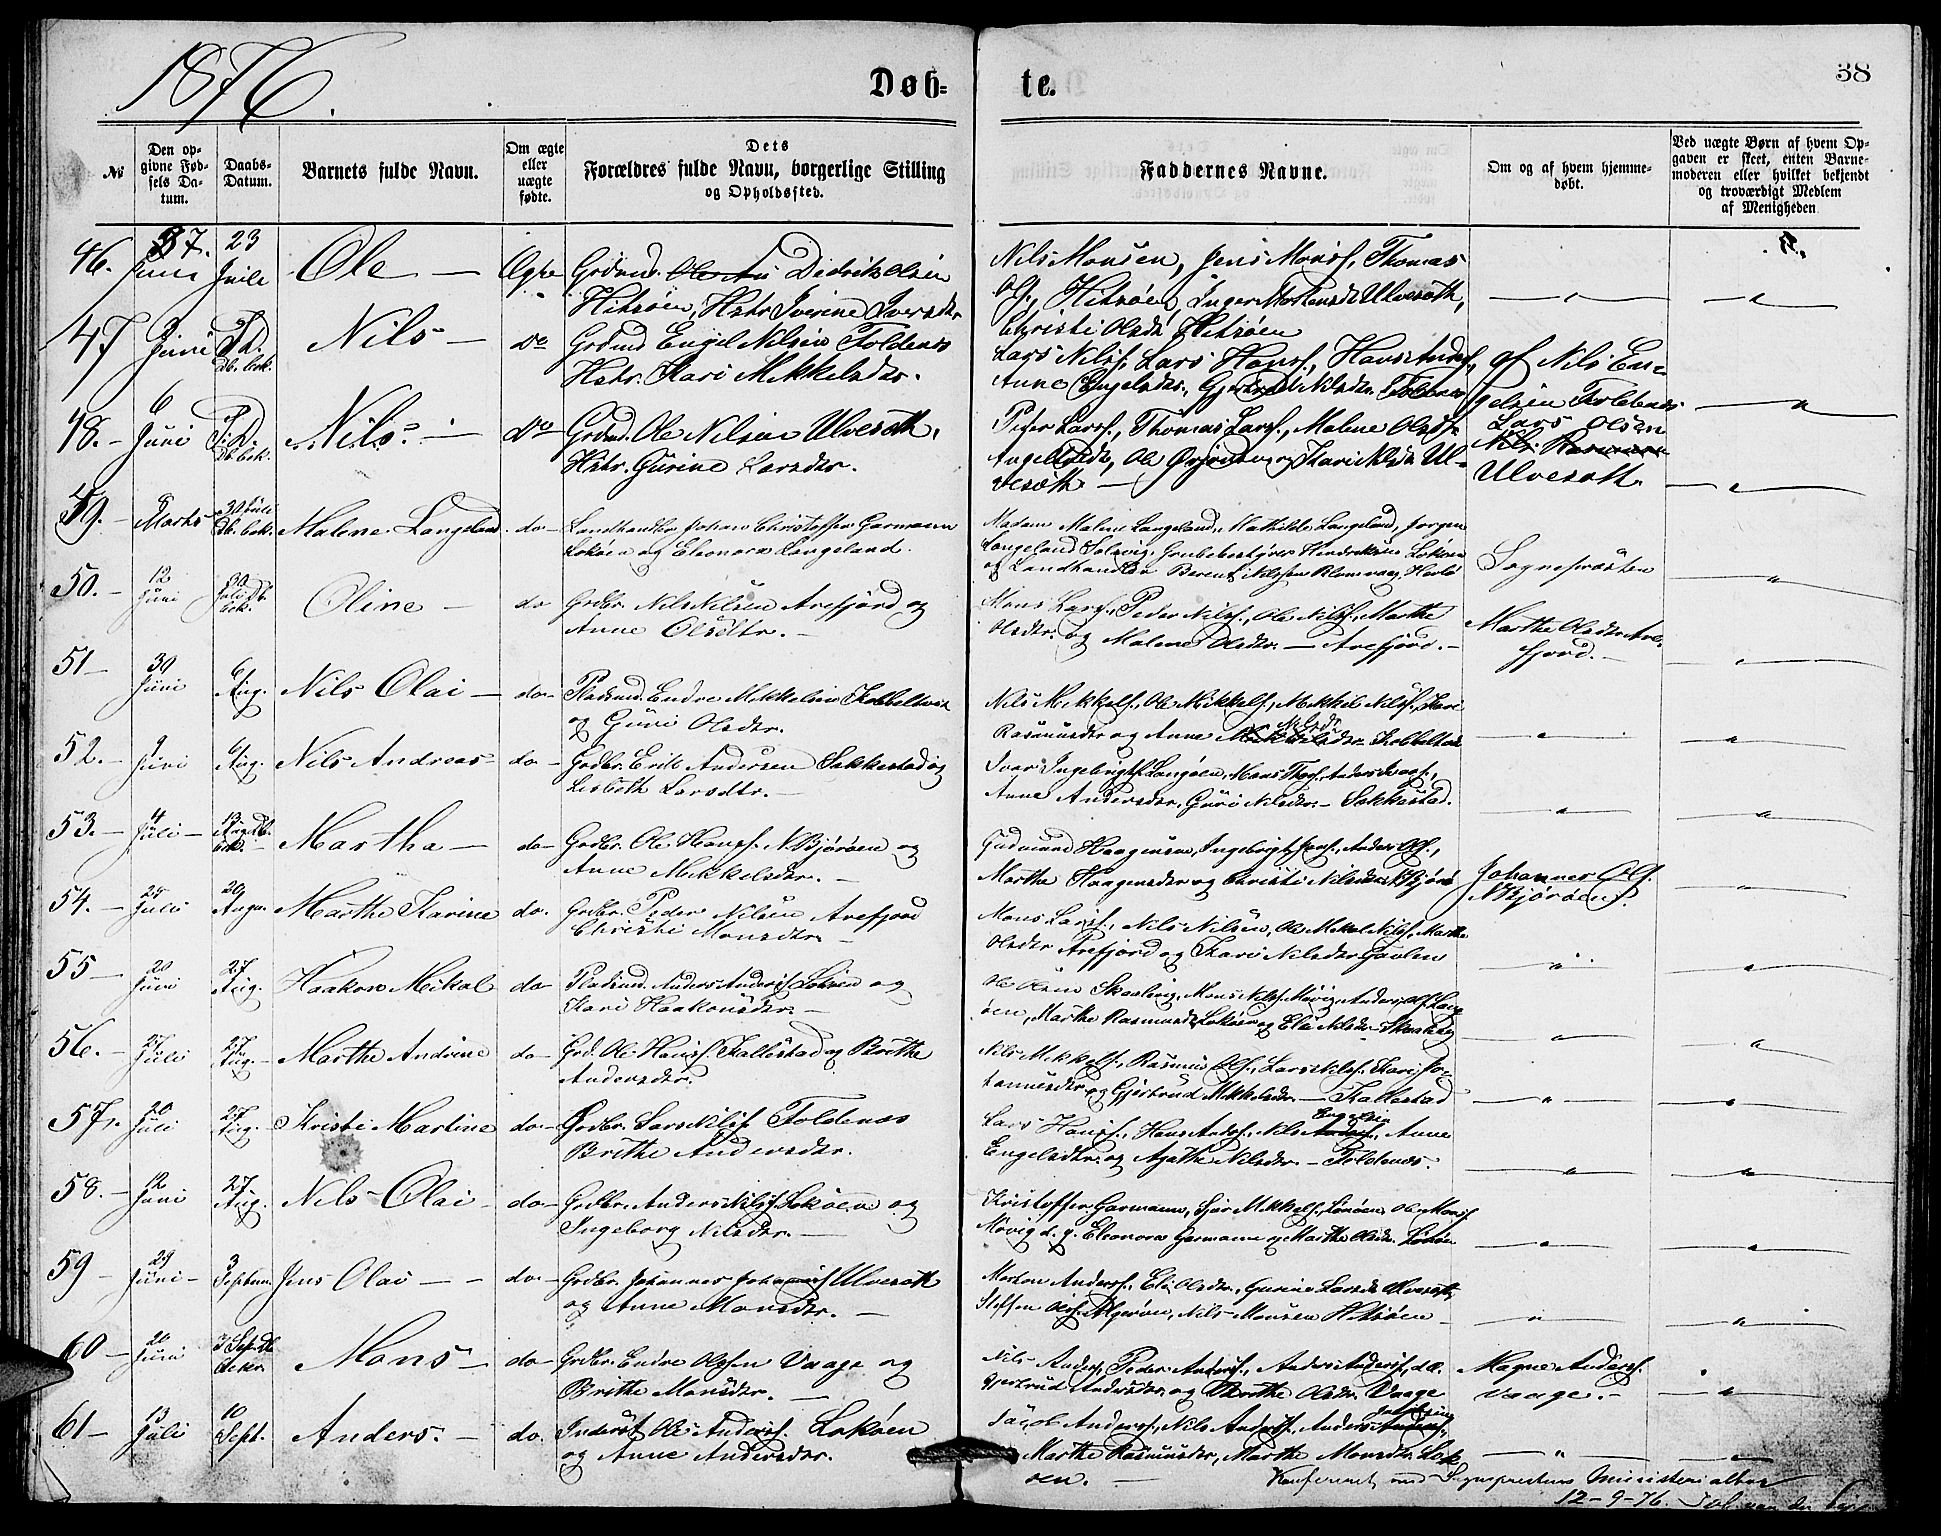 1876.
Døb=
te.
38
№
Den op-
givne Fød-
sels Da-
tum.
Daabs-
Datum.
Barnets fulde Navn.
Om ægte
eller
uægte
fødte.
Dets
Forældres fulde Navn, borgerlige Stilling
og Opholdssted.
Faddernes Navne.
Om og af hvem hjemme-
døbt.
Ved uægte Børn af hvem Op-
gaven er skeet, enten Barne-
moderen eller hvilket bekjendt
og troværdigt Medlem
af Menigheden
46. Juni 23 Juli Ole — Ægte Grdmd. Didrik Olsen
Hitsøen, Hstr. Iverine Iversdtr.
Nils Monsen, Jens Monss. Thomas
Hitsøen, Inger Ulvesøth,
Christi Olsdtr Hitsøen
47 Juni Db. bek. Nils — do Grdmd Engel Nilsen Toldenæs
Hstr. Kari Mikkelsdtr.
Lars Nilss., Lars Hanss., Hans Anders.,
Anne Engelsdtr., Gjertrud Nilsdtr. Toldenæs
af Nils En-
gelsen Toldenæs
48. — 6 Juni Db. bek. Nils. — do Grdmd. Ole Nilsen Ulvesøth,
Hstr. Gurine Larsdtr.
Peder Larss., Thomas Larss., Malene Olsdtr.
og Kari Nilsdtr Ul-
vesøth —
Lars Olsen
Ulvesøth
49. — Marts 30 Juli Db. bek. Malene Langeland do Landhandler Johan Christoffer Garmann
Lokøen og Eleonora Langeland.
Madam Malene Langeland, Mathilde Langeland, Jørgen
Langeland Solsvig, Grubebestyrer Hendriksen Lokøen
og Landhandler Berent Nilssen Blomvaag, Herlø
Sognepræsten
50. — 12 Juni 30 Juli Db. bek. Oline — do Grdbr. Nils Nilsen Arefjord og
Anne Olsdtr. —
Mons Larss., Peder Nilss., Ole Nilss., Marthe
Olsdtr. og Malene Olsdtr. — Arefjord. —
Marthe Olsdtr Are-
fjord. —
51 — 30 Juni 6 Aug. Nils Olai — do — Pladsmd. Endre Mikkelsen Kobbeltvet
og Guri Olsdtr.
Nils Mikkels., Ole Mikkels., Mikkel Nilss., Kari
Rasmusdtr og Anne Nilsdtr Kobbeltvet
52. — 9 Juni 6 Aug. Nils Andreas do — Grdbr. Erik Andersen Sekkestad og
Lisbeth Larsdtr. —
Ivar Ingebrigts. Langøen, Mons Thoss., Anders Ivers.,
Anne Andersdtr, Guro Nilsdtr. — Sekkestad.
53. — 4 Juli — 13 Aug. Db. bek. — Martha — do — Grdbr. Ole Hanss. N. Bjorøen og
Anne Mikkelsdtr. —
Gudmund Haagensen, Ingebrigt Jens., Anders Ols.,
Marthe Haagensdtr og Christi Nilsdtr N. Bjorø
Johannes Ols.
N. Bjorøen.
54. — 25 Juli 20 Augu. Marthe Karine do. Grdbr. Peder Nilsen Arefjord
Christi Monsdtr. —
Mons Larss., Nils Nilsen, Ole Nilss, Marthe
Olsdtr Arefjord og Kari Nilsdtr Gavlen
55 — 20 Juni 27 Aug. Haakon Mikal do Pladsmd. Anders Anders. Lokøen og
Kari Haakonsdtr. —
Ole Olsen Skaalvig, Mons Nilss. Møvig, Anders Ols. Lang-
øen, Marthe Rasmusdtr Lokøen og Eli Nilsdtr — Skaalvig
56. — 27 Juli 27 Aug. — Marthe Andrine do — Grd. Ole Hanss. Fallestad og Brithe
Andersdtr.
Nils Mikkels., Rasmus Ols., Lars Nilss. Kari Jo-
hannesdtr. og Gjertrud Mikkelsdtr. — Fallestad
57. — 20 Juli 27 Aug. — Kristi Martine do. — Grdbr. Lars Nilss Toldenæs
Brithe Andersdtr.
Lars Hanss., Hans Anders., Nils Engelsen, Anne
Engelsdtr. og Agathe Nilsdtr. — Toldenæs.
58. — 12 Juni 27 Aug. Nils Olai — do — Grdbr. Anders Nilss. Lokøen og
Ingeborg Nilsdtr. —
Kristoffer Garmann, Sjur Mikkels. Lokøen, Ole Monss
Møvig d. y. Eleonora Garmann og Marthe Olsdtr. Lokøen
59 — 29 Juni — 3 Septem. Jens Olai — — do. — Grdbr. Johannes Johanness Ulvesøth
og Anne Monsdtr. —
Morten Anders., Eli Olsdtr., Gurine Larsdtr Ulvesøth,
Steffen Olss. Algrøen, Nils Monsen Hitsøen —
60 — 20 Juni 3 Sept. Db. bekr. Mons — do — Grdbr. Endre Olssen Vaage og
Brithe Monsdtr. —
Nils Anders., Peder Anders., Anders Anders., do.
Gjertrud Andersdtr. og Brithe Olsdtr. Vaage
Magne Anders.
Vaage. —
61 — 13 Juli 10 Sept. Anders. — do. Inderst Ole Anders. Lokøen
og Anne Andersdtr.
Jacob Anders., Nils Anders., Anders
Marthe Rasmusdtr, Marthe Monsdtr Lok-
øen. —
Konfereret med Sognepræstens Ministerialbog
12-9-76.